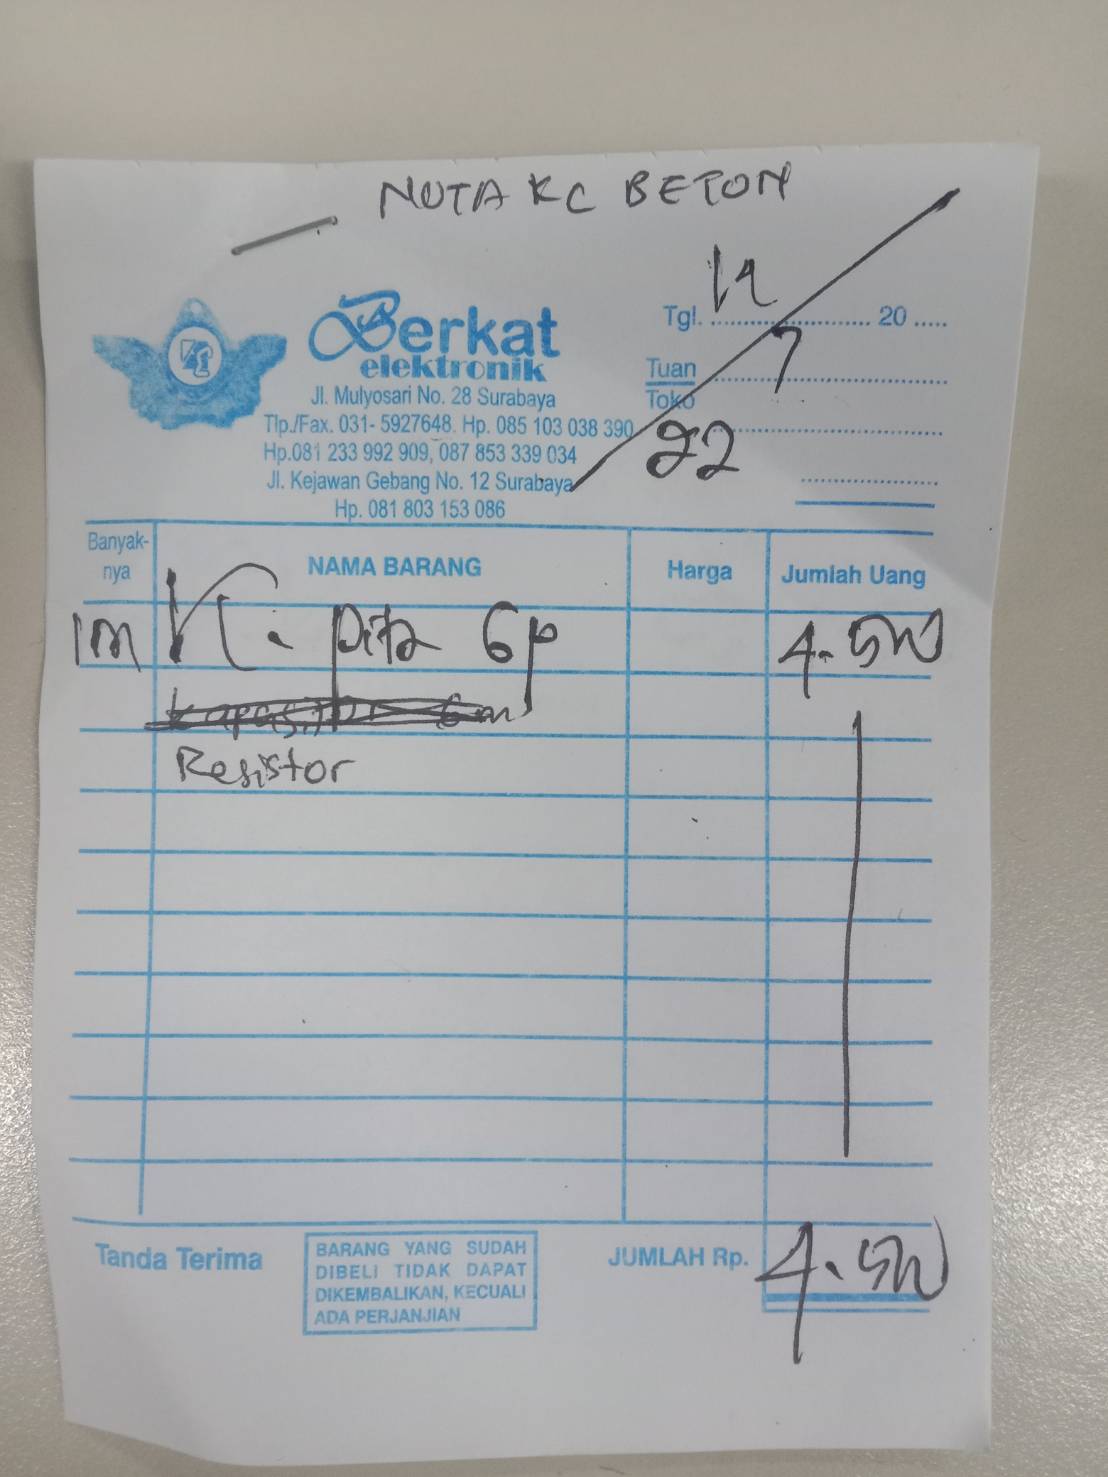 NOTA KC BETON
Berkat
elektronik
Jl. Mulyosari No. 28 Surabaya
Tlp./Fax. 031- 5927648. Hp. 085 103 038 390
Hp.081 233 992 909, 087 853 339 034
Jl. Kejawan Gebang No. 12 Surabaya
Hp. 081 803 153 086
Tgl. 20
7
Tuan
Toko
22
Banyak-
nya
NAMA BARANG
Harga
Jumlah Uang
1m K. pita 6p 4.500
Resistor
Tanda Terima
BARANG YANG SUDAH
DIBELI TIDAK DAPAT
DIKEMBALIKAN, KECUALI
ADA PERJANJIAN
JUMLAH Rp. 4.500